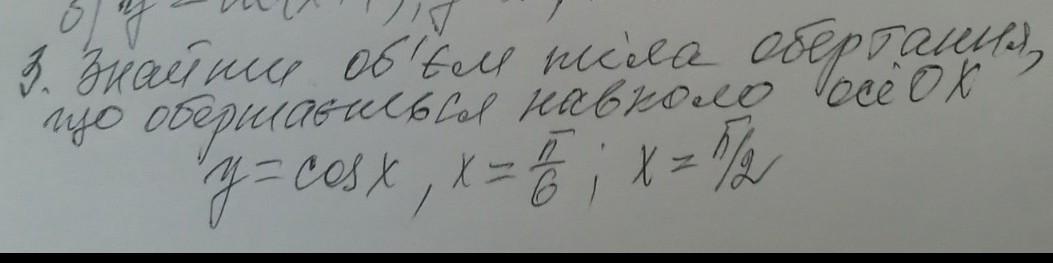 3. Знайти об'єм тіла обертання,
що обертається навколо осі OX
y = cos x, x = π/6 ; x = π/2